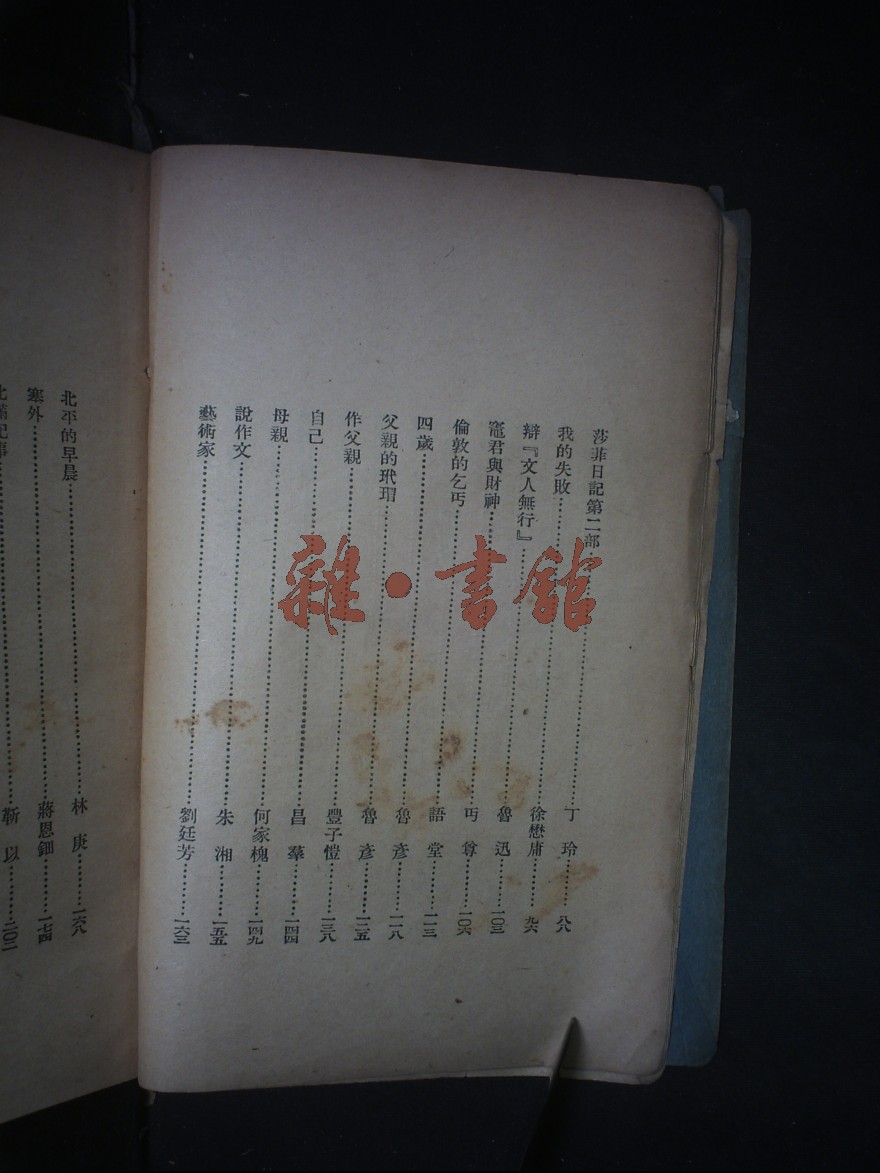 莎菲日記第二部……丁玲……八八
我的失敗……徐懋庸……九六
辯『文人無行』……魯迅……一〇三
竈君與財神……丐尊……一〇六
倫敦的乞丐……語堂……一一三
四歲……魯彥……一一八
父親的玳瑁……魯彥……一二五
作父親……豐子愷……一三八
自己……昌羣……一四四
母親……何家槐……一四九
說作文……朱湘……一五五
藝術家……劉廷芳……一六三
北平的早晨……林庚……一六八
塞外……蔣恩鈿……一七四
紀事……靳以……二〇二
雜·書館